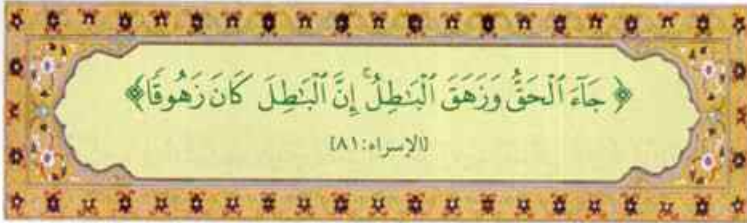 ﴿ جَآءَ ٱلْحَقُّ وَزَهَقَ ٱلْبَٰطِلُ ۚ إِنَّ ٱلْبَٰطِلَ كَانَ زَهُوقًا ﴾
[الإسراء:٨١]